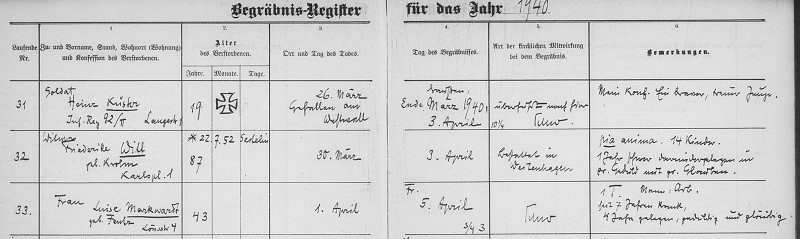 Begräbnis-Register für das Jahr 1940.
1
2.
3.
4.
5.
6.
Laufende Nr.
Zu- und Vorname, Stand, Wohnort (Wohnung) und Konfession des Verstorbenen.
Alter des Verstorbenen.
Jahre. Monate. Tage.
Ort und Tag des Todes.
Tag des Begräbnisses.
Art der kirchlichen Mitwirkung bei dem Begräbnis.
Bemerkungen.
31
Soldat
Heinz Küster
Inf. Reg 92/ Langestr 1
19
26. März
Gefallen am
Westwall
draußen,
Ende März 1940,
3. April
überführt nach hier
10¼
Mein Konf. Ein braver, treuer Junge.
32
Witwe
Friederike Will
Karlspl. 1
* 22. 7. 52
87
30. März
3. April
Bestattet in
pia anima. 14 Kinder.
1 Jahr schwer daniederliegen in
gr. Geduld mit gr. Glauben.
33.
Frau
Luise Markwardt
43
1. April
Fr.
5. April
1 T. Mann: Arb.
seit 7 Jahren krank,
4 Jahre gelegen, geduldig und gläubig.